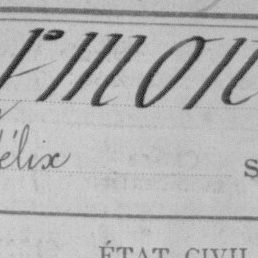 rmon
élix
S
ÉTAT CIVIL